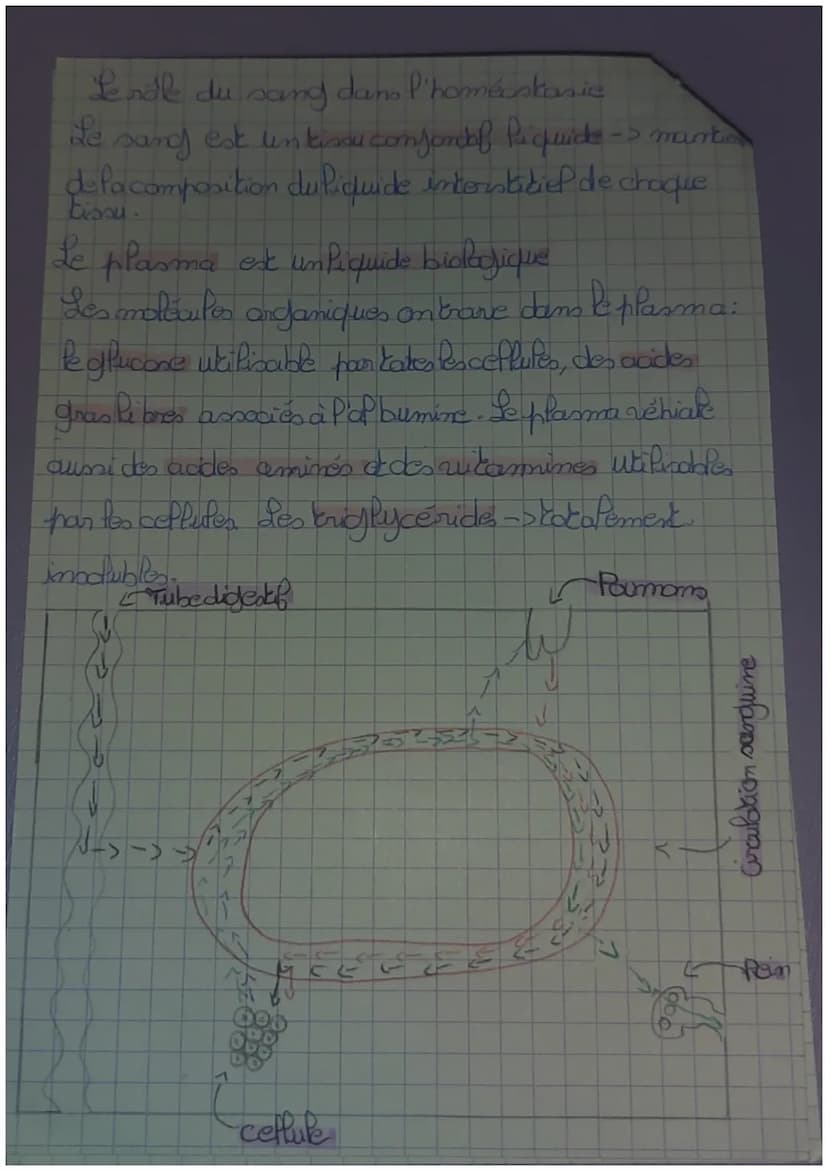 Le rôle du sang dans l'homéostasie
Le sang est un tissu conjonctif liquide -> maintien
de la composition du liquide interstitiel de chaque
tissu.
Le plasma est un liquide biologique
Les molécules organiques on trouve dans le plasma :
le glucose utilisable par toutes les cellules, des acides
gras libres associés à l'albumine. Le plasma véhicule
aussi des acides aminés et des vitamines utilisables
par les cellules. Les triglycérides -> totalement
insolubles.
Tube digestif
Poumons
Circulation sanguine
Rein
cellule